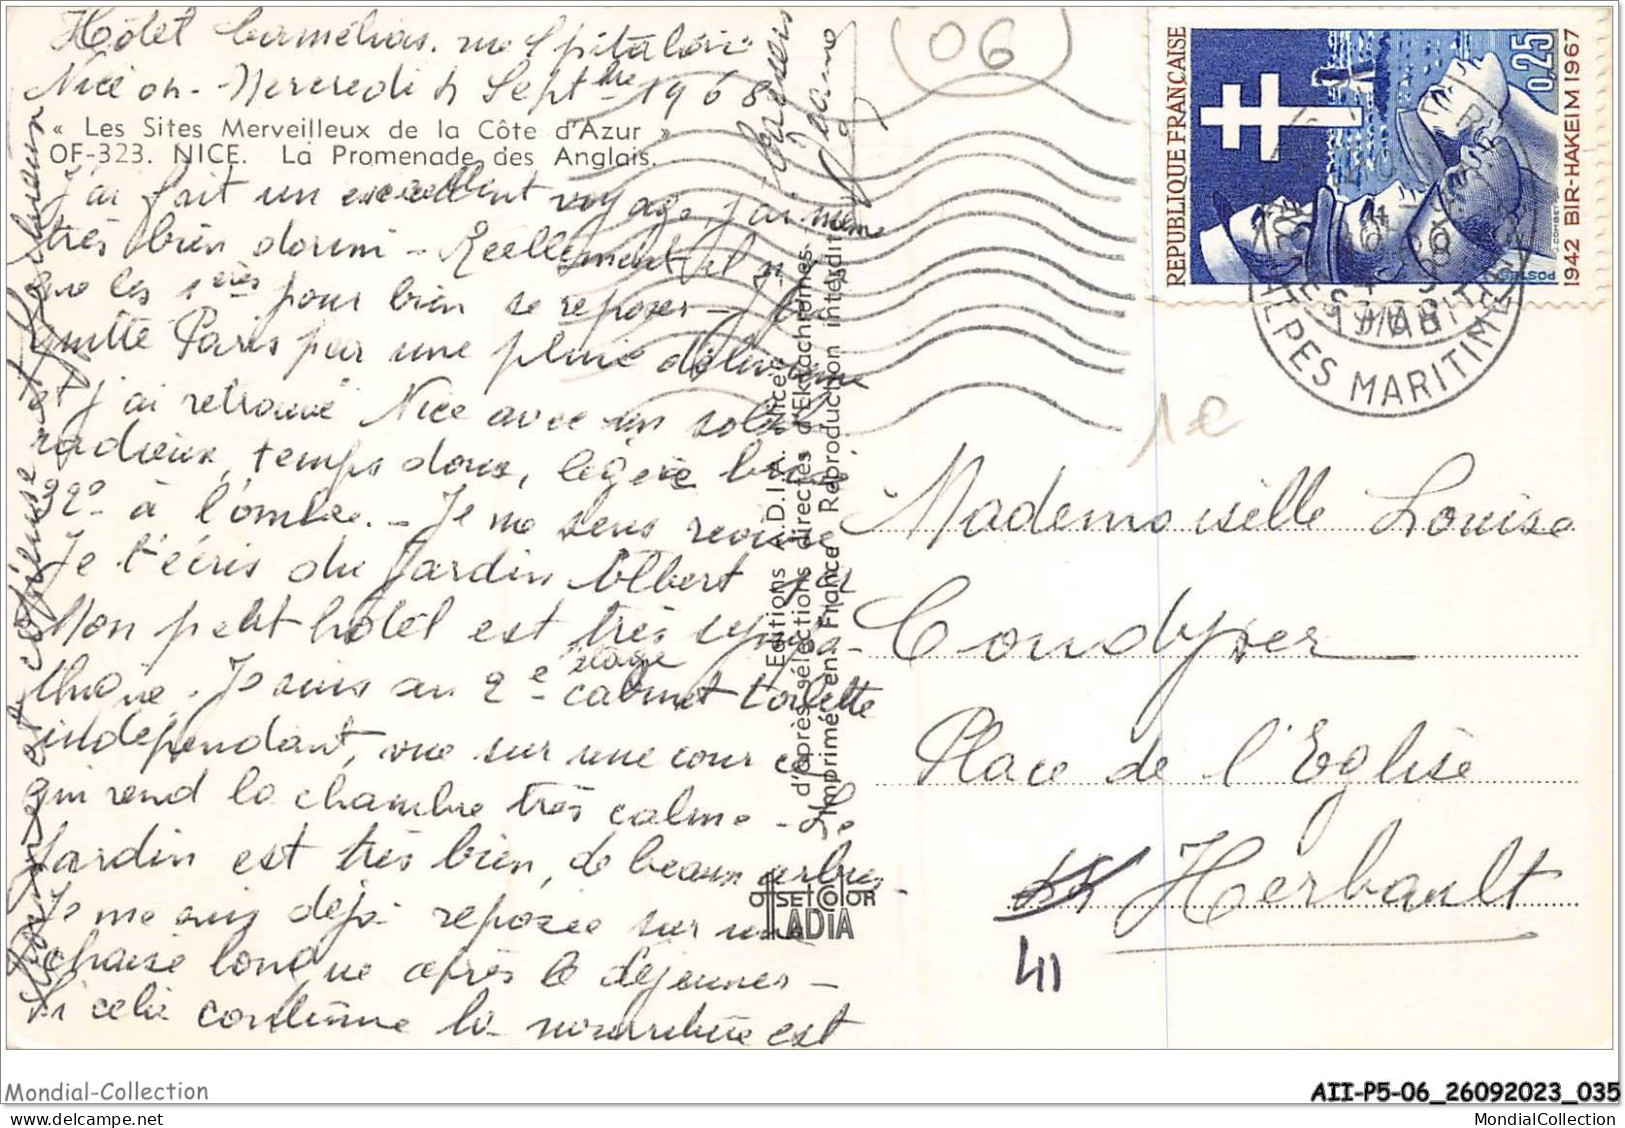 Hôtel Camélias. rue Spitalieri
Nice on - Mercredi 4 Septbre 1968
« Les Sites Merveilleux de la Côte d'Azur »
OF-323. NICE. La Promenade des Anglais.
J'ai fait un excellent voyage j'ai même
très bien dormi - Réellement il n'y
que les 1ères pour bien se reposer - J'ai
quitté Paris par une pluie
j'ai retrouvé Nice avec un soleil
radieux, temps doux, légère brise
32° à l'ombre. - Je me sens revivre
Je t'écris du Jardin Albert 1er
Mon petit hôtel est très sympa-
thique. Je suis au 2e étage cabinet toilette
indépendant, vue sur une cour ce
qui rend la chambre très calme - Le
Jardin est très bien, de beaux arbres -
Je me suis déjà reposée sur une
chaise longue après le déjeuner -
Si cela continue la nourriture est
et copieuse et
Baisers
Editions A.D.I.A. Nice
d'après sélections directes d'Ektachromes.
Imprimé en France Reproduction interdite
OFFSETCOLOR
ADIA
06
REPUBLIQUE FRANÇAISE
0,25
1942 BIR-HAKEIM 1967
POSTES
J. COMBET
1968
ALPES MARITIMES
1€
Mademoiselle Louise
Condyser
Place de l'Eglise
Herbault
41
Mondial-Collection
AII-P5-06_26092023_035
MondialCollection